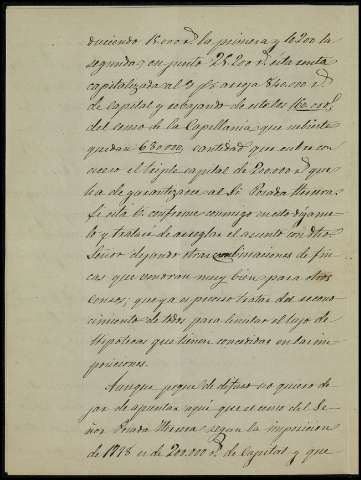 duciendo 18.000 rs la primera y 10.200 la
segunda, en junto 28.200 rs esta renta
capitalizada al 3 p% arroja 840.000 rs
de Capital y rebajando de estos los 160.000 rs
del censo de la Capellania que
quedan 680.000, cantidad que cubre con
exceso el triple capital de 200.000 rs que
ha de garantizarse al Sr. Posada Herrera
Si está V. conforme conmigo en esto digame-
lo y trataré de arreglar el asunto con dho
Señor dejando otras combinaciones de fin-
cas que vendran muy bien para otros
censos; que ya es preciso tratar del recono-
cimiento de todos para limitar el lujo de
Hipotecas que tienen concedidas en las im-
posiciones.
Aunque peque de difuso no quiero de-
jar de apuntar aqui que el censo del Se-
ñor Posada Herrera segun la imposicion
de 1798 es de 200.000 rs de Capital y que